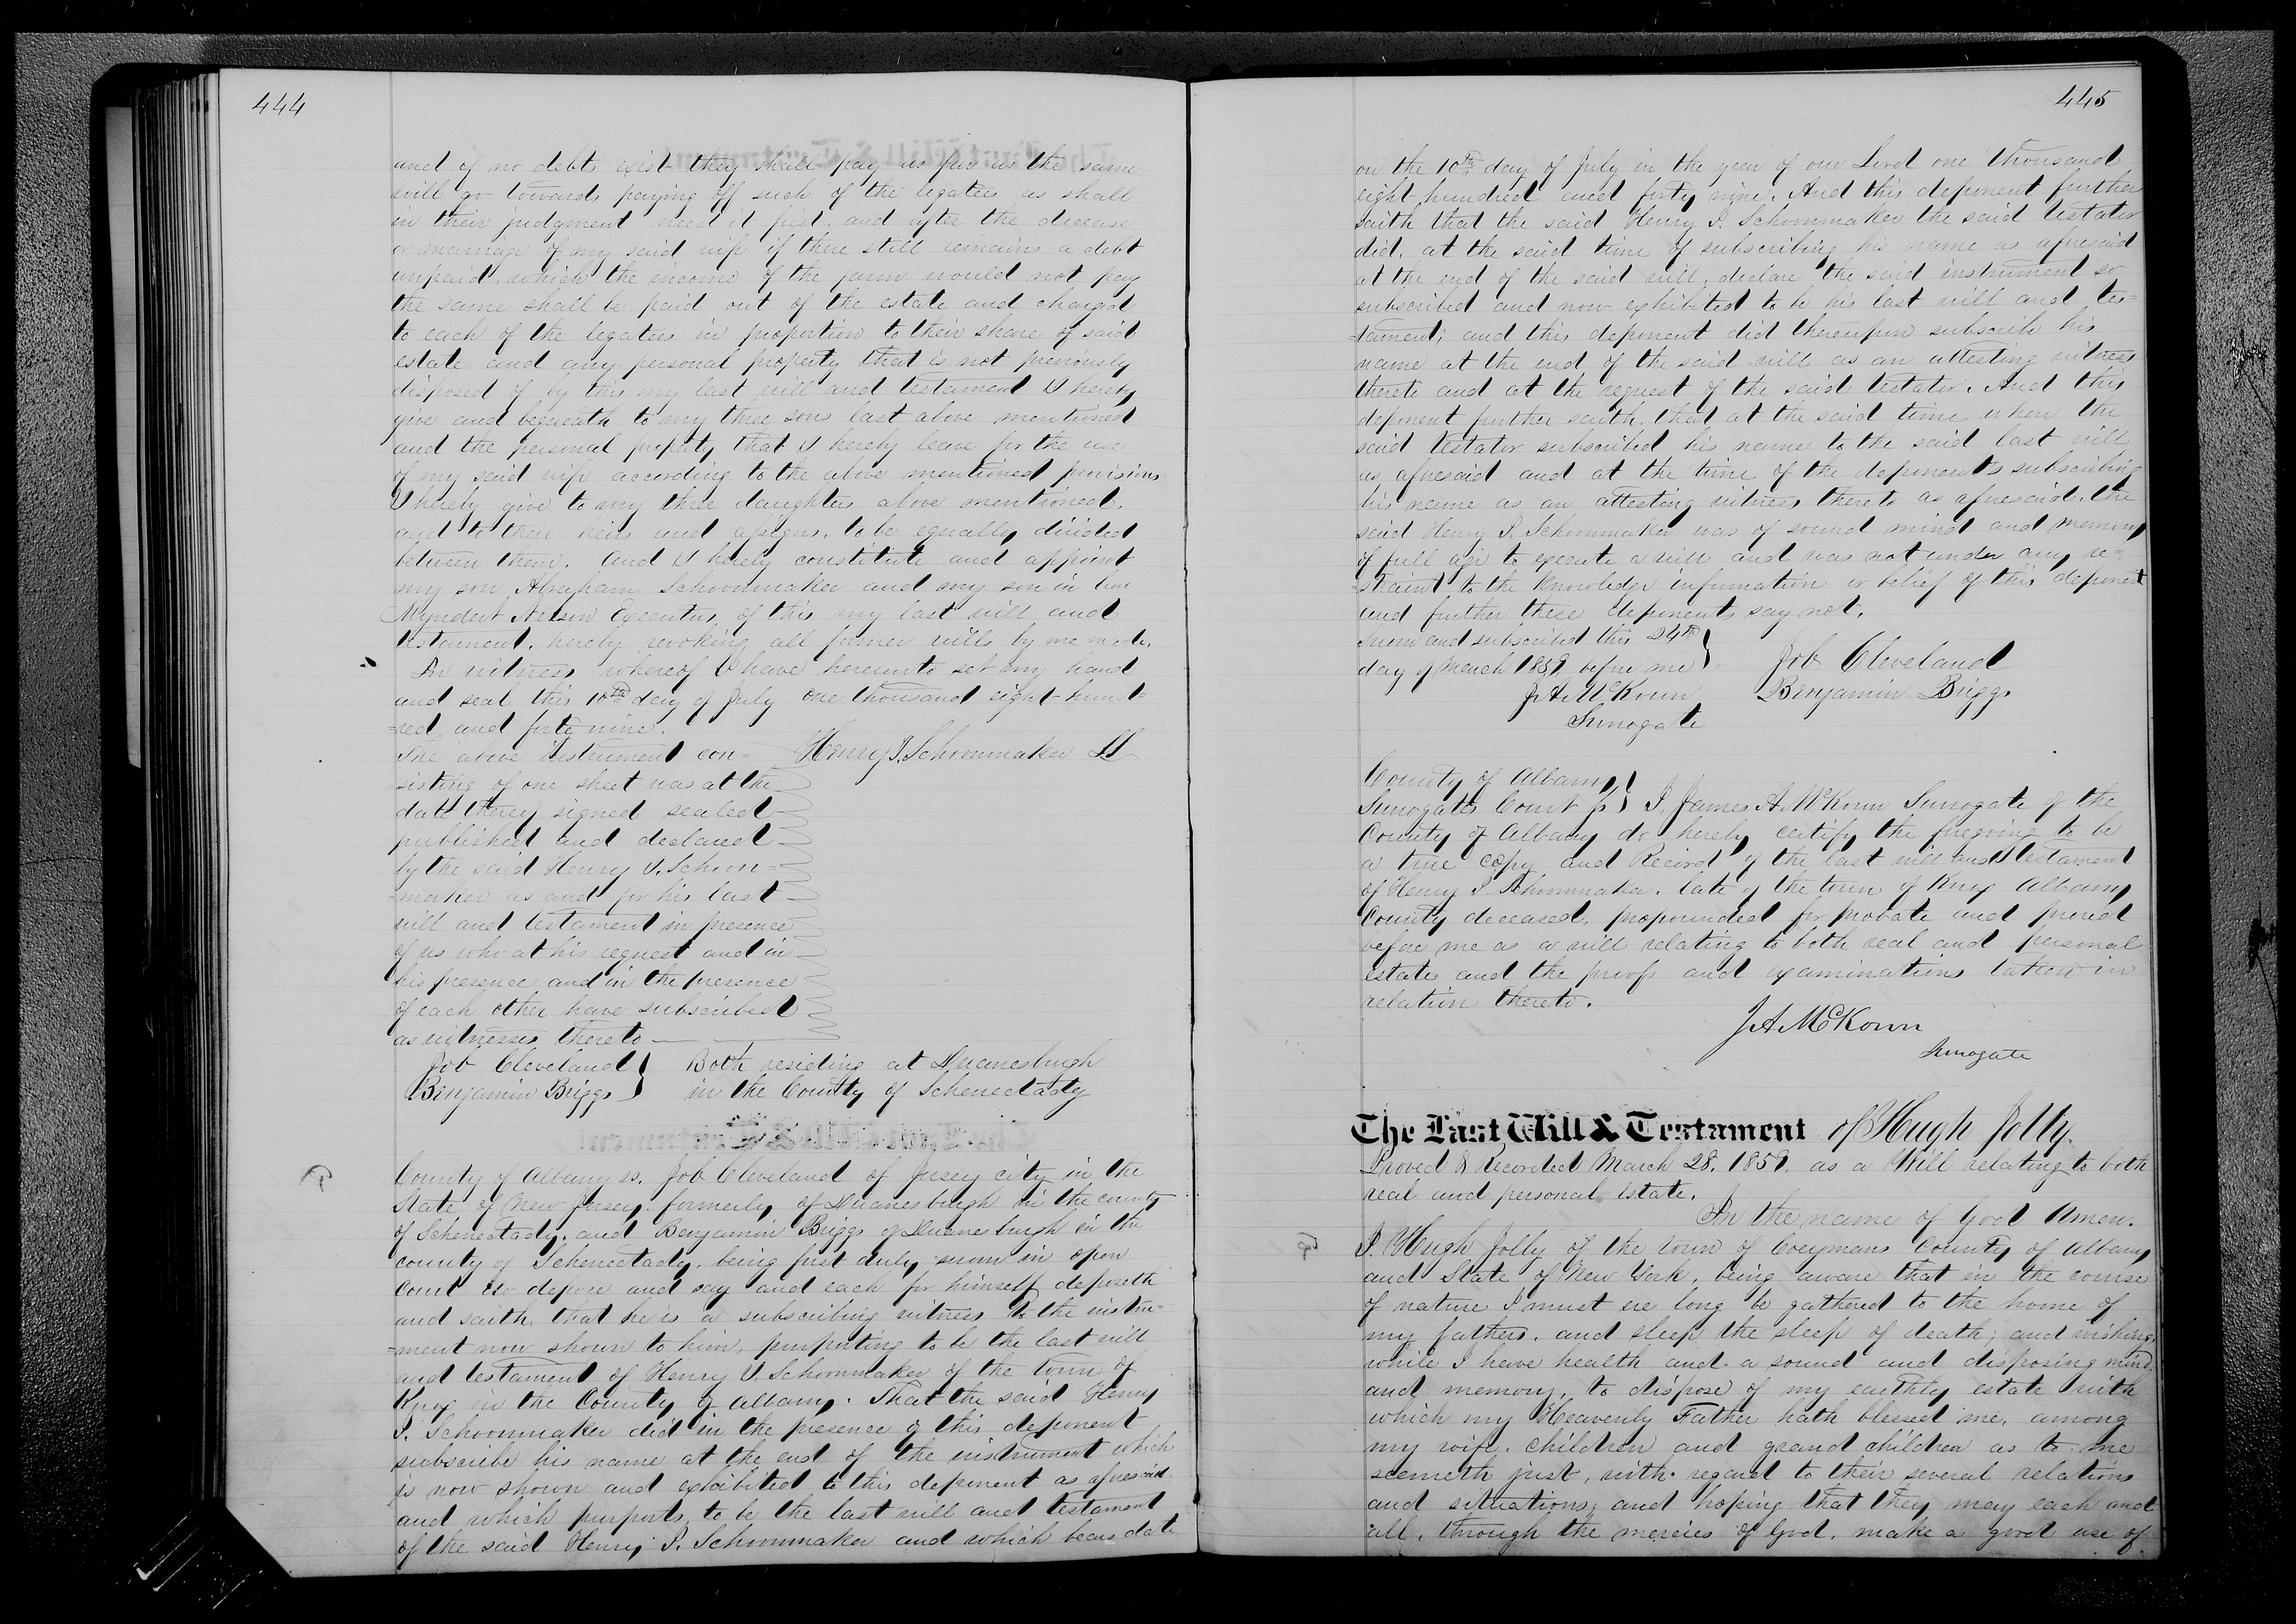 444
and if no debts exist they shall pay as far as the same
will go towards paying off such of the legatees as shall
in their judgment need it first, and after the decease
or marriage of my said wife if there still remains a debt
unpaid, which the income of the farm would not pay
the same shall be paid out of the estate and charged
to each of the legatees in proportion to their share of said
estate and any personal property that is not previously
disposed of by this my last will and testament I hereby
give and bequeath to my three sons last above mentioned
and the personal property that I hereby leave for the use
of my said wife according to the above mentioned provisions
I hereby give to my three daughters above mentioned,
and to their heirs and assigns, to be equally divided
between them. And I hereby constitute and appoint
my son Abraham Schoonmaker and my son in law
Myndert Nelson Executors, of this my last will and
testament, hereby revoking all former wills by me made.
In witness whereof I have hereunto set my hand
and seal this 10th day of July one thousand eight hund-
=red and forty nine.
The above instrument con- Henry I. Schoonmaker LS
sisting of one sheet was at the
date thereof signed sealed
published and declared
by the said Henry I. Schoon-
-maker as and for his last
will and testament in presence
of us who at his request and in
his presence and in the presence
of each other have subscribed
as witnesses thereto
Job Cleveland } Both residing at Duanesburgh
Benjamin Briggs } in the County of Schenectady
County of Albany ss. Job Cleveland of Jersey city in the
State of New Jersey, formerly of Duanesburgh in the county
of Schenectady, and Benjamin Briggs of Duanesburgh in the
county of Schenectady, being first duly sworn in open
Court do depose and say and each for himself deposeth
and saith, that he is a subscribing witness to the instru-
=ment now shown to him, purporting to be the last will
and testament of Henry I. Schoonmaker of the town of
Knox in the County of Albany. That the said Henry
I. Schoonmaker did in the presence of this deponent
subscribe his name at the end of the instrument which
is now shown and exhibited to this deponent as aforesaid,
and which purports to be the last will and testament
of the said Henry I. Schoonmaker and which bears date
445
on the 10th day of July in the year of our Lord one thousand
eight hundred and forty nine. And this deponent further
saith that the said Henry I. Schoonmaker the said testator
did, at the said time of subscribing his name as aforesaid
at the end of the said will, declare the said instrument so
subscribed and now exhibited to be his last will and tes=
=tament; and this deponent did thereupon subscribe his
name at the end of the said will as an attesting witness
thereto and at the request of the said testator. And this
deponent further saith, that at the said time when the
said testator subscribed his name to the said last will
as aforesaid and at the time of the deponents subscribing
his name as an attesting witness thereto as aforesaid, the
said Henry I. Schoonmaker was of sound mind and memory
of full age to execute a will and was not under any re=
=straint to the knowledge information or belief of this deponent
and further these deponents say not.
Sworn and subscribed this 24th }
day of March 1859 before me } Job Cleveland
J. A. McKown Benjamin Briggs
Surrogate
County of Albany }
Surrogates Court ss } I, James A. McKown Surrogate of the
County of Albany do hereby certify the foregoing to be
a true copy and Record of the last will and testament
of Henry I Schoonmaker, late of the town of Knox Albany
County deceased, propounded for probate and proved
before me as a will relating to both real and personal
estate and the proofs and examinations taken in
relation thereto.
J A McKown
Surrogate
The Last Will & Testament of Hugh Jolly.
Proved & Recorded March 28, 1859. as a Will relating to both
real and personal Estate.
In the name of God Amen.
I, Hugh Jolly of the town of Coeymans County of Albany
and State of New York, being aware that in the course
of nature I must ere long be gathered to the home of
my fathers, and sleep the sleep of death; and wishing
while I have health and a sound and disposing mind
and memory, to dispose of my earthly estate with
which my Heavenly Father hath blessed me, among
my wife, children and grand children as to me
seemeth just, with regard to their several relations
and situations; and hoping that they may each and
all, through the mercies of God, make a good use of